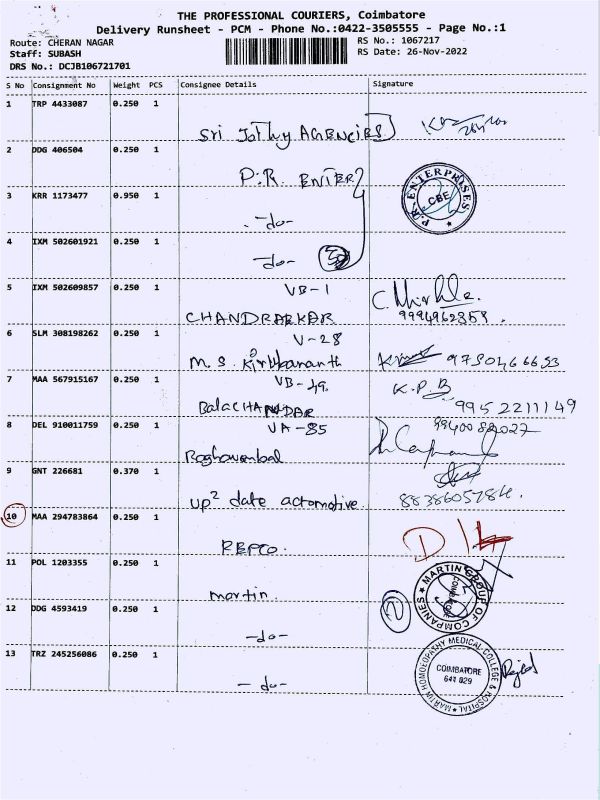 THE PROFESSIONAL COURIERS, Coimbatore
Delivery Runsheet - PCM - Phone No.:0422-3505555 - Page No.:1
Route: CHERAN NAGAR
RS No.: 1067217
Staff: SUBASH
RS Date: 26-Nov-2022
DRS No.: DCJB106721701
S No Consignment No Weight PCS Consignee Details Signature
1 TRP 4433087 0.250 1
Sri Jothy AGENCIES
2 DDG 406504 0.250 1
P.R. ENTER
P.R. ENTERPRISES
CBE
3 KRR 1173477 0.950 1
-do-
4 IXM 502601921 0.250 1
-do-
5 IXM 502609857 0.250 1
VB-1
CHANDRAKAR
6 SLM 308198262 0.250 1
V-28
M.S.
7 MAA 567915167 0.250 1
VB-49
K.P.B
BalaCHANDAR
9952211149
8 DEL 910011759 0.250 1
VA-85
9940082027
9 GNT 226681 0.370 1
up2 date actomotive
8838605784.
10 MAA 294783864 0.250 1
REPCO.
11 POL 1203355 0.250 1
martin
MARTIN GROUP OF COMPANIES
12 DDG 4593419 0.250 1
-do-
13 TRZ 245256086 0.250 1
-do-
MARTIN HOMOEOPATHY MEDICAL COLLEGE & HOSPITAL
COIMBATORE
641 029